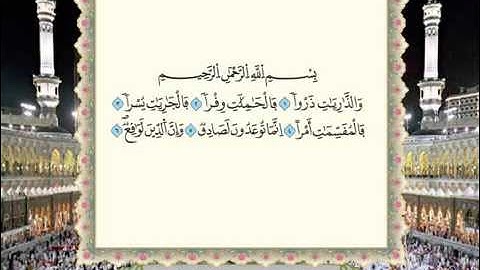 بِسْمِ اللَّهِ الرَّحْمَٰنِ الرَّحِيمِ
وَالذَّارِيَاتِ ذَرْوًا ١ فَالْحَامِلَاتِ وِقْرًا ٢ فَالْجَارِيَاتِ يُسْرًا ٣
فَالْمُقَسِّمَاتِ أَمْرًا ٤ إِنَّمَا تُوعَدُونَ لَصَادِقٌ ٥ وَإِنَّ الدِّينَ لَوَاقِعٌ ٦